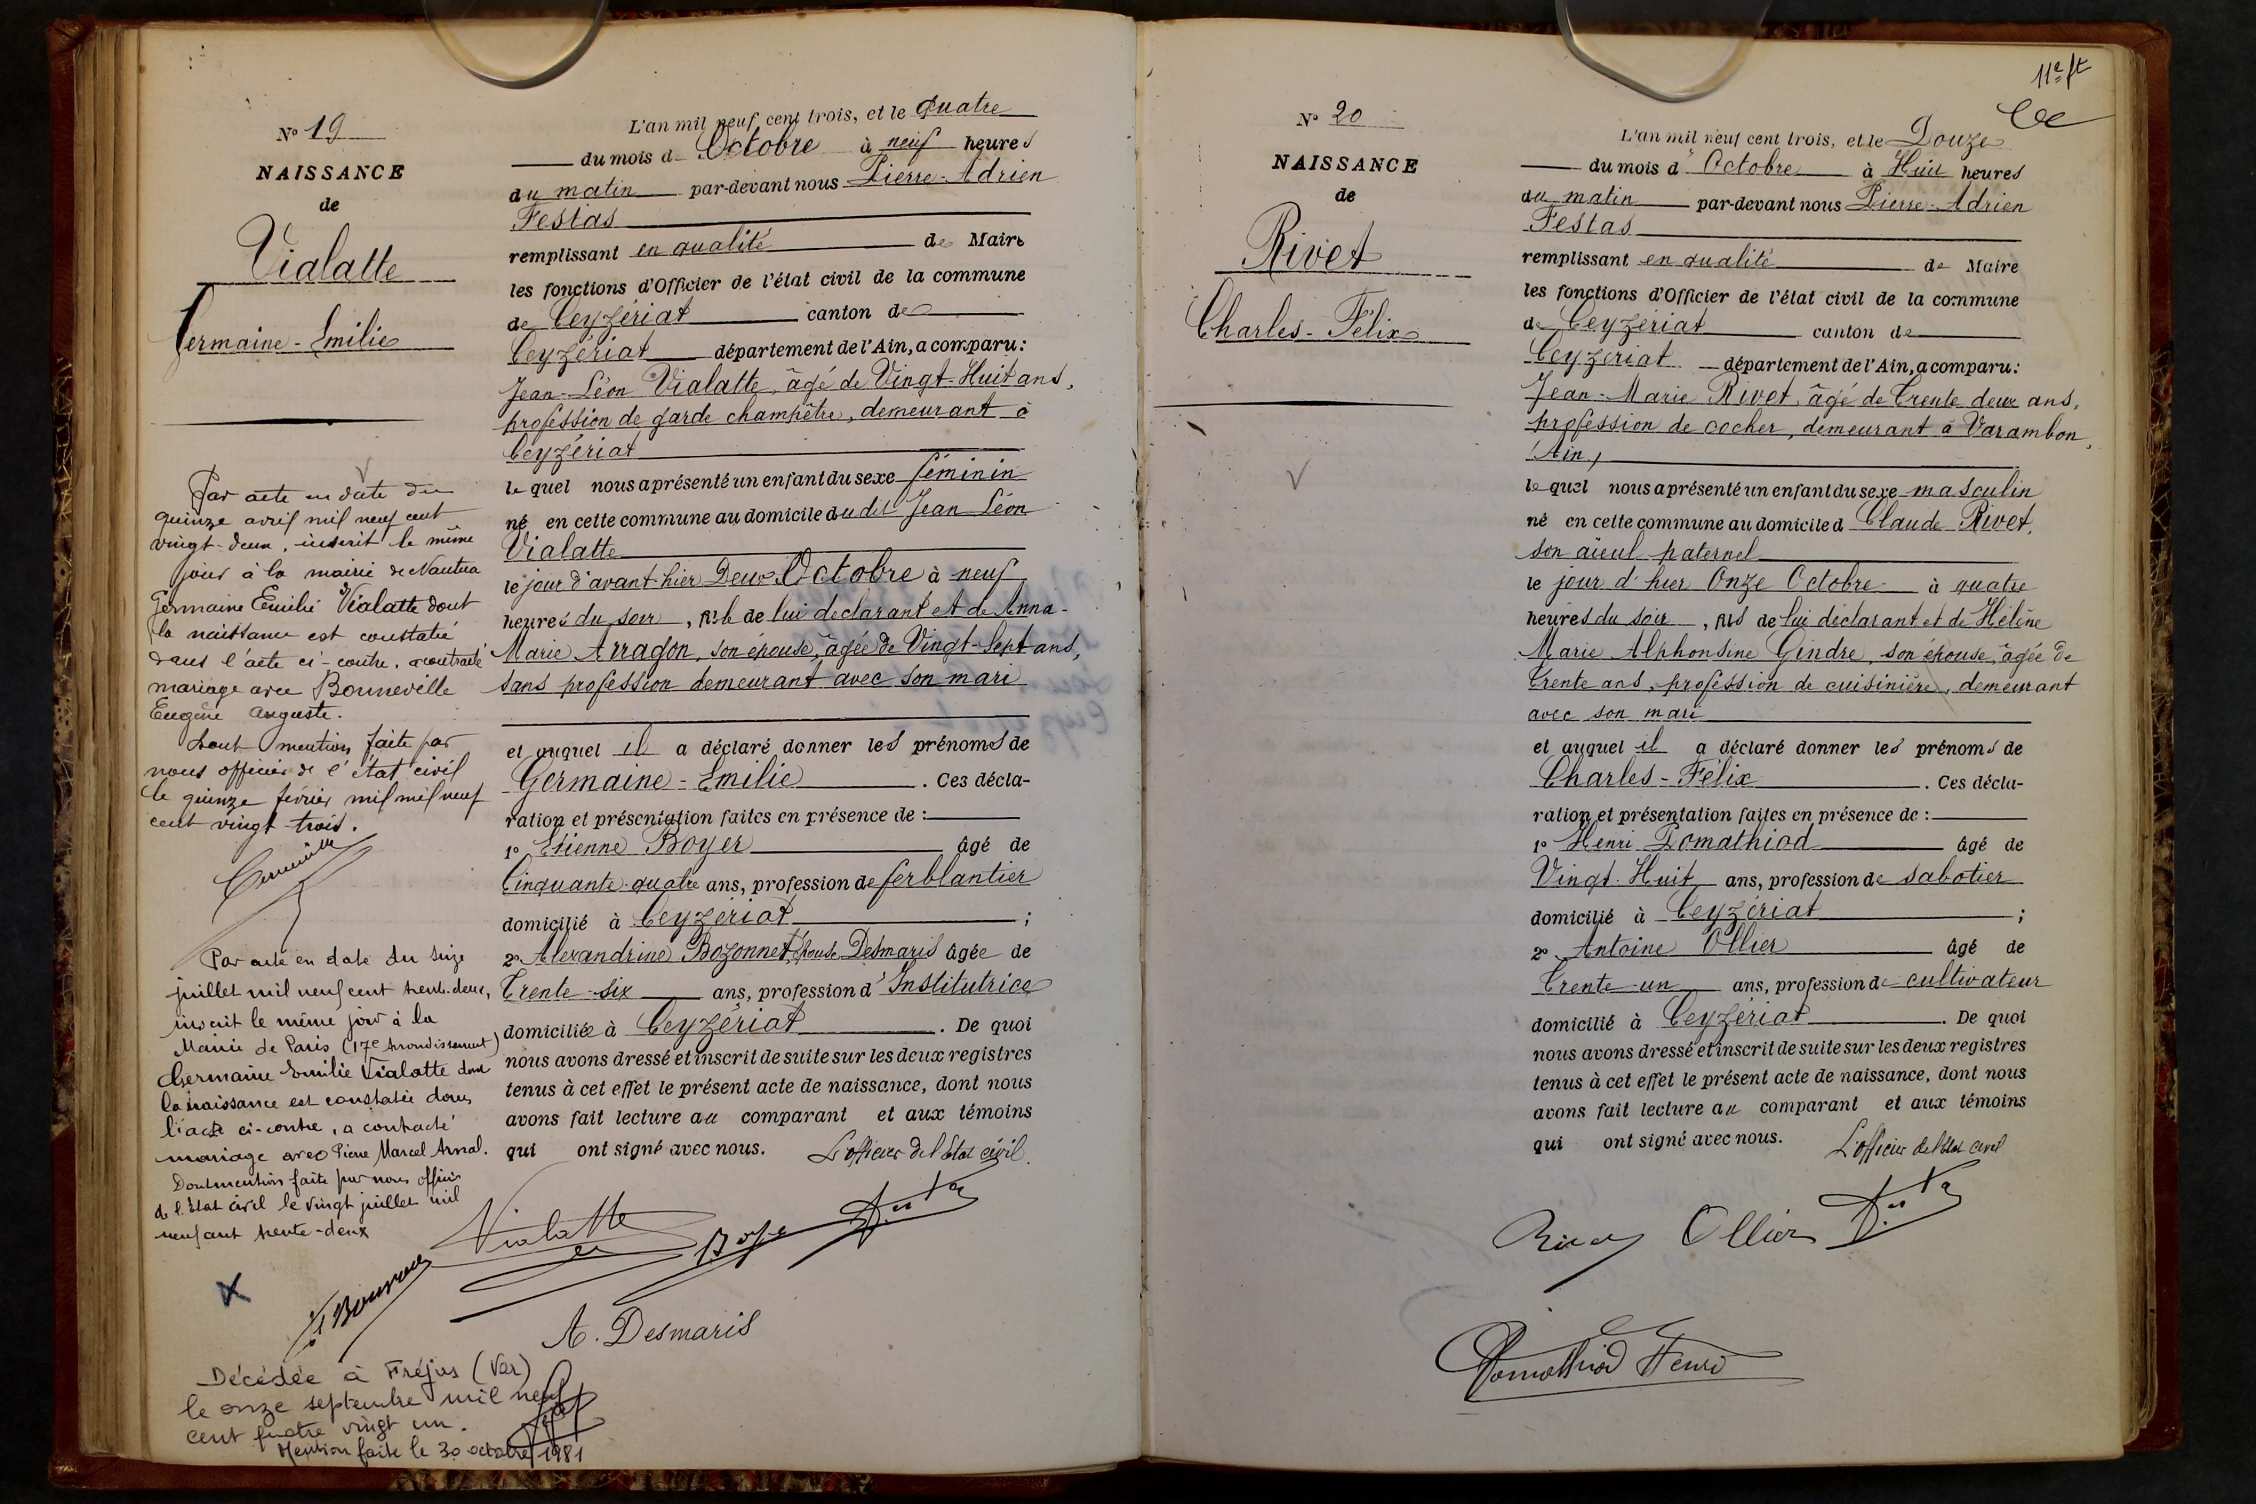 N° 19
NAISSANCE
de
Vialatte
Germaine-Emilie
Par acte en date du
quinze avril mil neuf cent
vingt-deux, inscrit le même
jour à la mairie de Nantua
Germaine Emilie Vialatte dont
la naissance est constatée
dans l'acte ci-contre, a contracté
mariage avec Bonneville
Eugène Auguste.
Dont mention faite par
nous officier de l'état civil
le quinze février mil mil neuf
cent vingt-trois.
Par acte en date du seize
juillet mil neuf cent trente-deux,
inscrit le même jour à la
Mairie de Paris (17e Arrondissement)
Germaine Emilie Vialatte dont
la naissance est constatée dans
l'acte ci-contre, a contracté
mariage avec Pierre Marcel Arnal.
Dont mention faite par nous officier
de l'Etat civil le vingt juillet mil
neuf cent trente-deux
Décédée à Fréjus (Var)
le onze septembre mil neuf
cent quatre vingt un.
Mention faite le 30 octobre 1981
L'an mil neuf cent trois, et le Quatre
du mois d'Octobre à neuf heures
du matin par-devant nous Pierre-Adrien
Festas
remplissant en qualité de Maire
les fonctions d'Officier de l'état civil de la commune
de Ceyzériat canton de
Ceyzériat département de l'Ain, a comparu:
Jean-Léon Vialatte, âgé de Vingt-Huit ans,
profession de garde champêtre, demeurant à
Ceyzériat
lequel nous a présenté un enfant du sexe féminin
né en cette commune au domicile du dit Jean Léon
Vialatte
le jour d'avant-hier Deux Octobre à neuf
heures du soir, fille de lui déclarant et de Anna-
Marie Arragon, son épouse, âgée de Vingt-Sept ans,
sans profession demeurant avec son mari
et auquel il a déclaré donner les prénoms de
Germaine-Emilie. Ces décla-
ration et présentation faites en présence de :
1° Etienne Boyer âgé de
Cinquante-quatre ans, profession de ferblantier
domicilié à Ceyzériat ;
2° Alexandrine Bozonnet, épouse Desmaris âgée de
Trente-six ans, profession d'Institutrice
domiciliée à Ceyzériat. De quoi
nous avons dressé et inscrit de suite sur les deux registres
tenus à cet effet le présent acte de naissance, dont nous
avons fait lecture au comparant et aux témoins
qui ont signé avec nous. L'officier de l'état civil.
Vialatte
A. Desmaris
11e ft
N° 20
NAISSANCE
de
Rivet
Charles-Félix
L'an mil neuf cent trois, et le Douze
du mois d'Octobre à Huit heures
du matin par-devant nous Pierre-Adrien
Festas
remplissant en qualité de Maire
les fonctions d'Officier de l'état civil de la commune
de Ceyzériat canton de
Ceyzériat département de l'Ain, a comparu:
Jean-Marie Rivet, âgé de Trente deux ans,
profession de cocher, demeurant à Varambon,
(Ain)
lequel nous a présenté un enfant du sexe masculin
né en cette commune au domicile d Claude Rivet,
son aïeul paternel
le jour d'hier Onze Octobre à quatre
heures du soir, fils de lui déclarant et de Hélène
Marie Alphonsine Gindre, son épouse, âgée de
Trente ans, profession de cuisinière, demeurant
avec son mari
et auquel il a déclaré donner les prénoms de
Charles-Félix. Ces décla-
ration et présentation faites en présence de :
1° Henri Pomathiod âgé de
Vingt-Huit ans, profession de sabotier
domicilié à Ceyzériat ;
2° Antoine Ollier âgé de
Trente-un ans, profession de cultivateur
domicilié à Ceyzériat. De quoi
nous avons dressé et inscrit de suite sur les deux registres
tenus à cet effet le présent acte de naissance, dont nous
avons fait lecture au comparant et aux témoins
qui ont signé avec nous. L'officier de l'état civil
Rivet Ollier
Pomathiod Henri